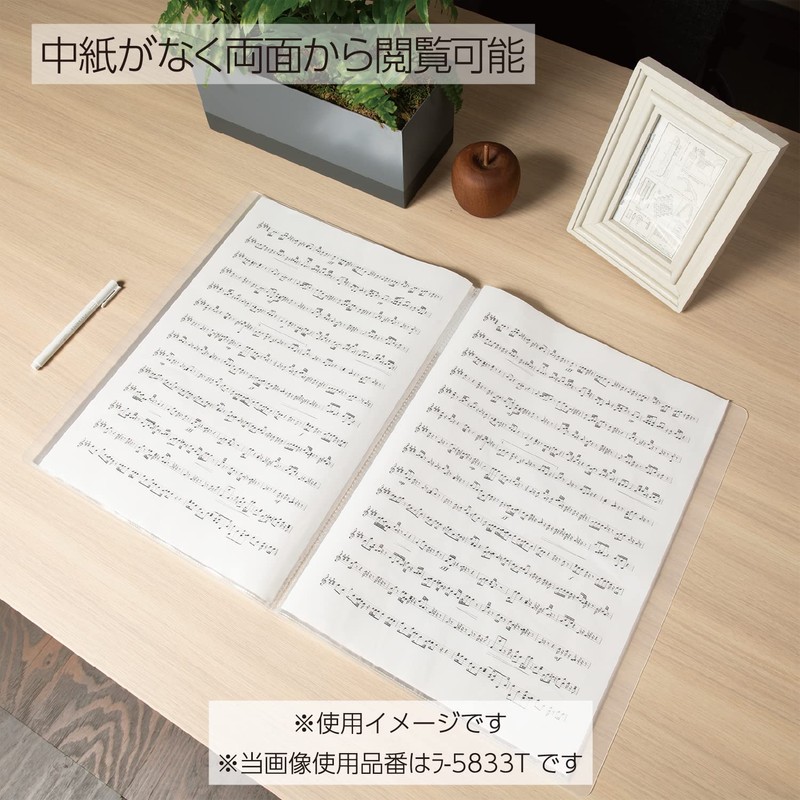 中紙がなく両面から閲覧可能
※使用イメージです
※当画像使用品番はﾗ-5833Tです